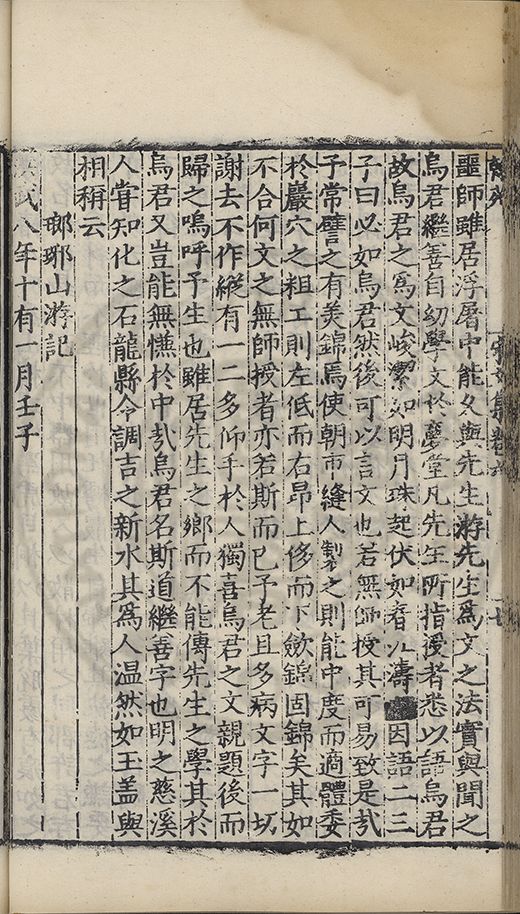 噩師雖居浮屠中能久與先生游先生爲文之法實與聞之
烏君繼善自幼學文於夢堂凡先生所指授者悉以語烏君
故烏君之爲文峻潔如明月珠起伏如春江濤因語二三
子曰必如烏君然後可以言文也若無師授其可易致是㢤
子常譬之有美錦焉使朝市縫人製之則能中度而適體委
於巖穴之粗工則左低而右昂上侈而下歛錦固錦矣其如
不合何文之無師授者亦若斯而已予老且多病文字一切
謝去不作縱有一二多仰手於人獨喜烏君之文親題後而
歸之嗚呼予生也雖居先生之鄉而不能傳先生之學其於
烏君又豈能無慊於中㢤烏君名斯道繼善字也明之慈溪
人甞知化之石龍縣令調吉之新水其爲人温然如玉盖與
相稱云
瑯琊山游記
洪武八年十有一月壬子